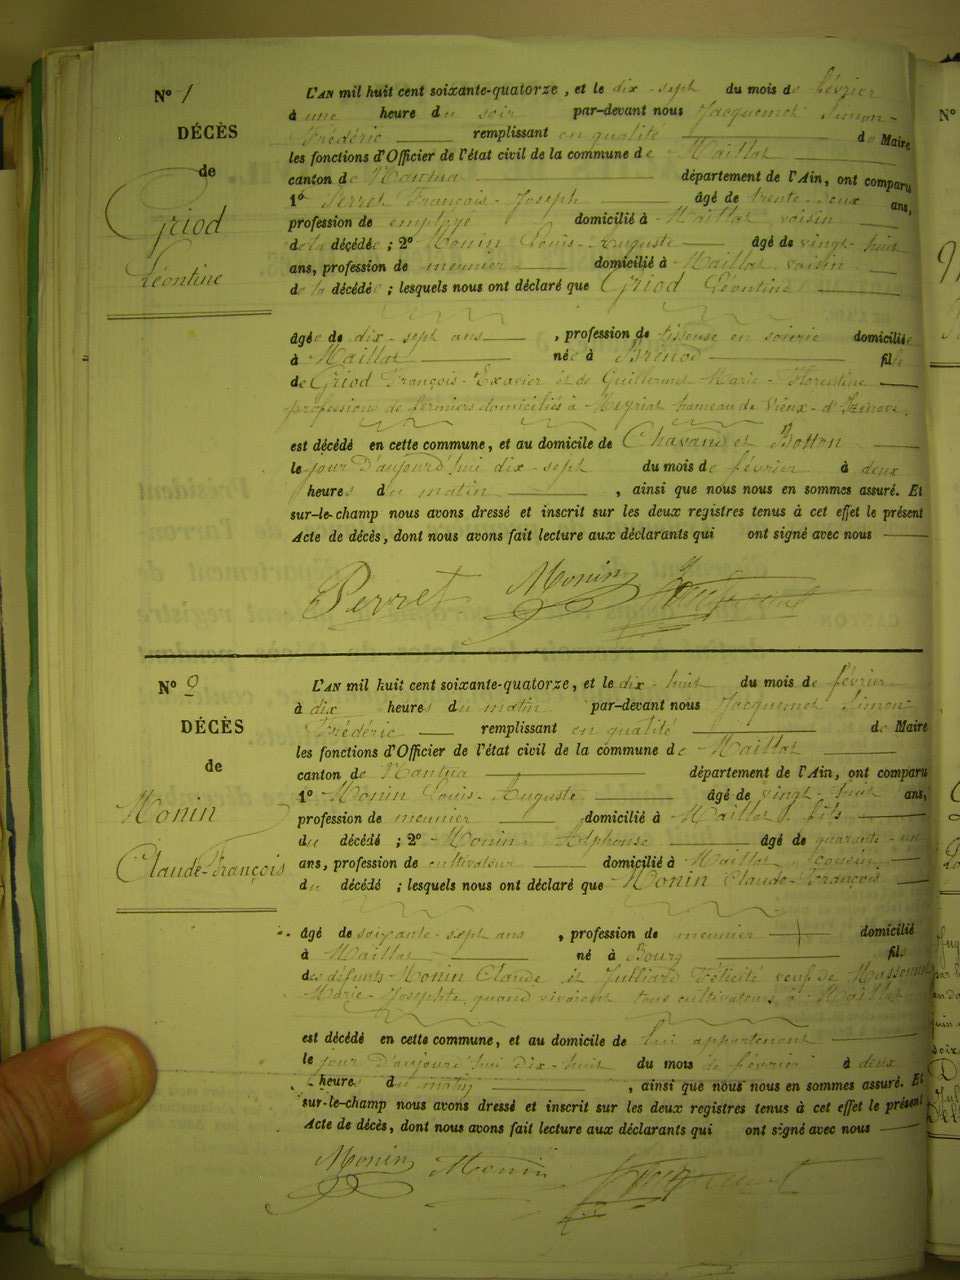 N° 1
DÉCÈS
de
Griod
Léontine
L'AN mil huit cent soixante-quatorze, et le dix-sept du mois de février
à une heure du soir par-devant nous Jacquemet Simon-
Frédéric remplissant en qualité de Maire
les fonctions d'Officier de l'état civil de la commune de Maillat
canton de Nantua département de l'Ain, ont comparu
1° Perret François-Joseph âgé de trente-deux ans,
profession de employé domicilié à Maillat voisin
de la décédée ; 2° Monin Louis-Auguste âgé de vingt-huit
ans, profession de meunier domicilié à Maillat voisin
de la décédée ; lesquels nous ont déclaré que Griod Léontine
âgée de dix-sept ans, profession de tisseuse en soierie domiciliée
à Maillat née à Brénod fille
de Griod François-Exavier et de Guillermet Marie-Florentine
profession de fermiers domiciliés à Meyriat hameau de Vieux-d'Izenave.
est décédé en cette commune, et au domicile de Chavan et Botton
le jour d'aujourd'hui dix-sept du mois de février à deux
heures du matin, ainsi que nous nous en sommes assuré. Et
sur-le-champ nous avons dressé et inscrit sur les deux registres tenus à cet effet le présent
Acte de décès, dont nous avons fait lecture aux déclarants qui ont signé avec nous
Perret Monin Jacquemet
N° 2
DÉCÈS
de
Monin
Claude-François
L'AN mil huit cent soixante-quatorze, et le dix-huit du mois de février
à dix heures du matin par-devant nous Jacquemet Simon
Frédéric remplissant en qualité de Maire
les fonctions d'Officier de l'état civil de la commune de Maillat
canton de Nantua département de l'Ain, ont comparu
1° Monin Louis-Auguste âgé de vingt-huit ans,
profession de meunier domicilié à Maillat fils
du décédé ; 2° Monin Alphonse âgé de quarante-un
ans, profession de cultivateur domicilié à Maillat cousin
du décédé ; lesquels nous ont déclaré que Monin Claude-François
âgé de soixante-sept ans, profession de meunier domicilié
à Maillat né à Bourg fils
des défunts Monin Claude et Julliard Félicité veuf de
Marie-Josephte quand vivaient tous cultivateurs à Maillat
est décédé en cette commune, et au domicile de lui appartenant
le jour d'aujourd'hui dix-huit du mois de février à deux
heures du matin, ainsi que nous nous en sommes assuré. Et
sur-le-champ nous avons dressé et inscrit sur les deux registres tenus à cet effet le présent
Acte de décès, dont nous avons fait lecture aux déclarants qui ont signé avec nous
Monin Monin Jacquemet